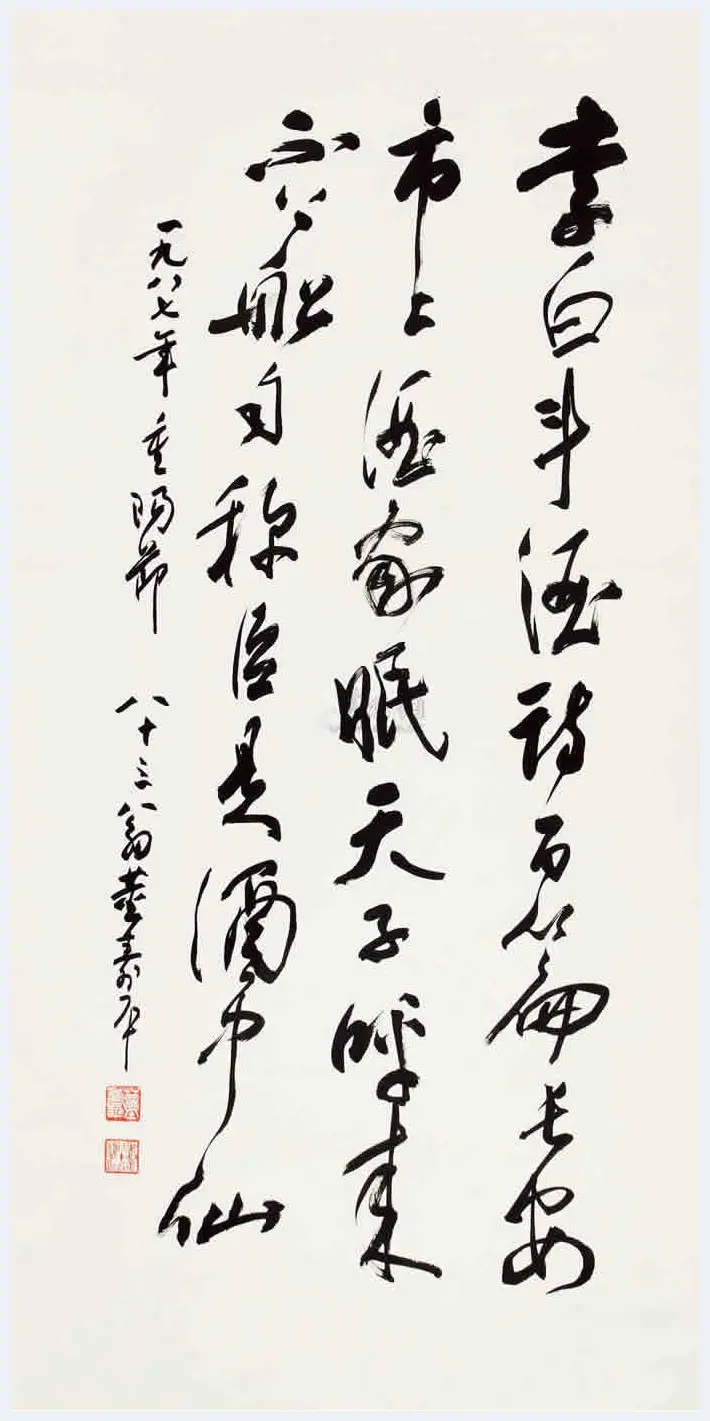 李白斗酒詩百篇長安
市上酒家眠天子呼來
不上船自稱臣是酒中仙
一九八七年重陽節 八十三翁董壽平